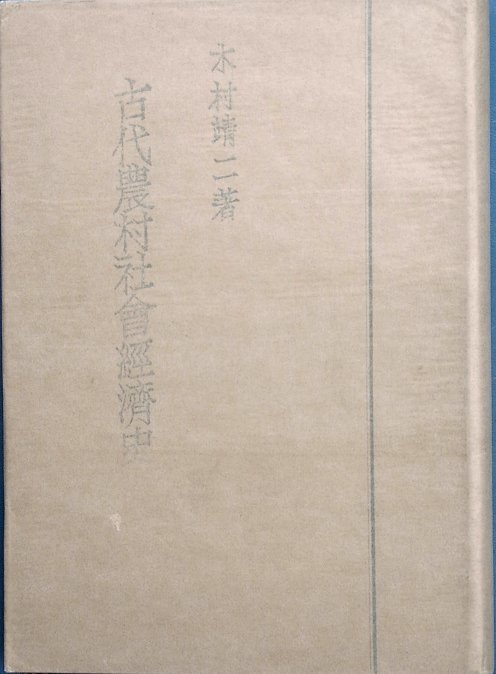 木村靖二著
古代農村社會經濟史